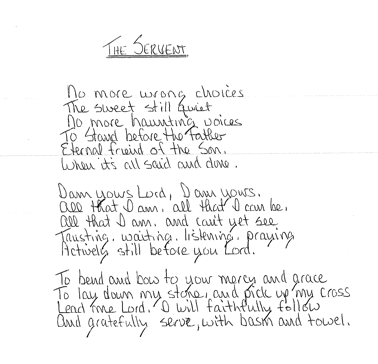 THE SERVENT
No more wrong choices
The sweet still quiet
No more haunting voices
To stand before the Father
Eternal friend of the Son.
When it's all said and done.
I am yours Lord, I am yours.
All that I am, all that I can be,
All that I am, and can't yet see
Trusting, waiting, listening, praying
Actively still before you Lord.
To bend and bow to your mercy and grace
To lay down my stone, and pick up my cross
Lead me Lord. I will faithfully follow
And gratefully serve, with basin and towel.